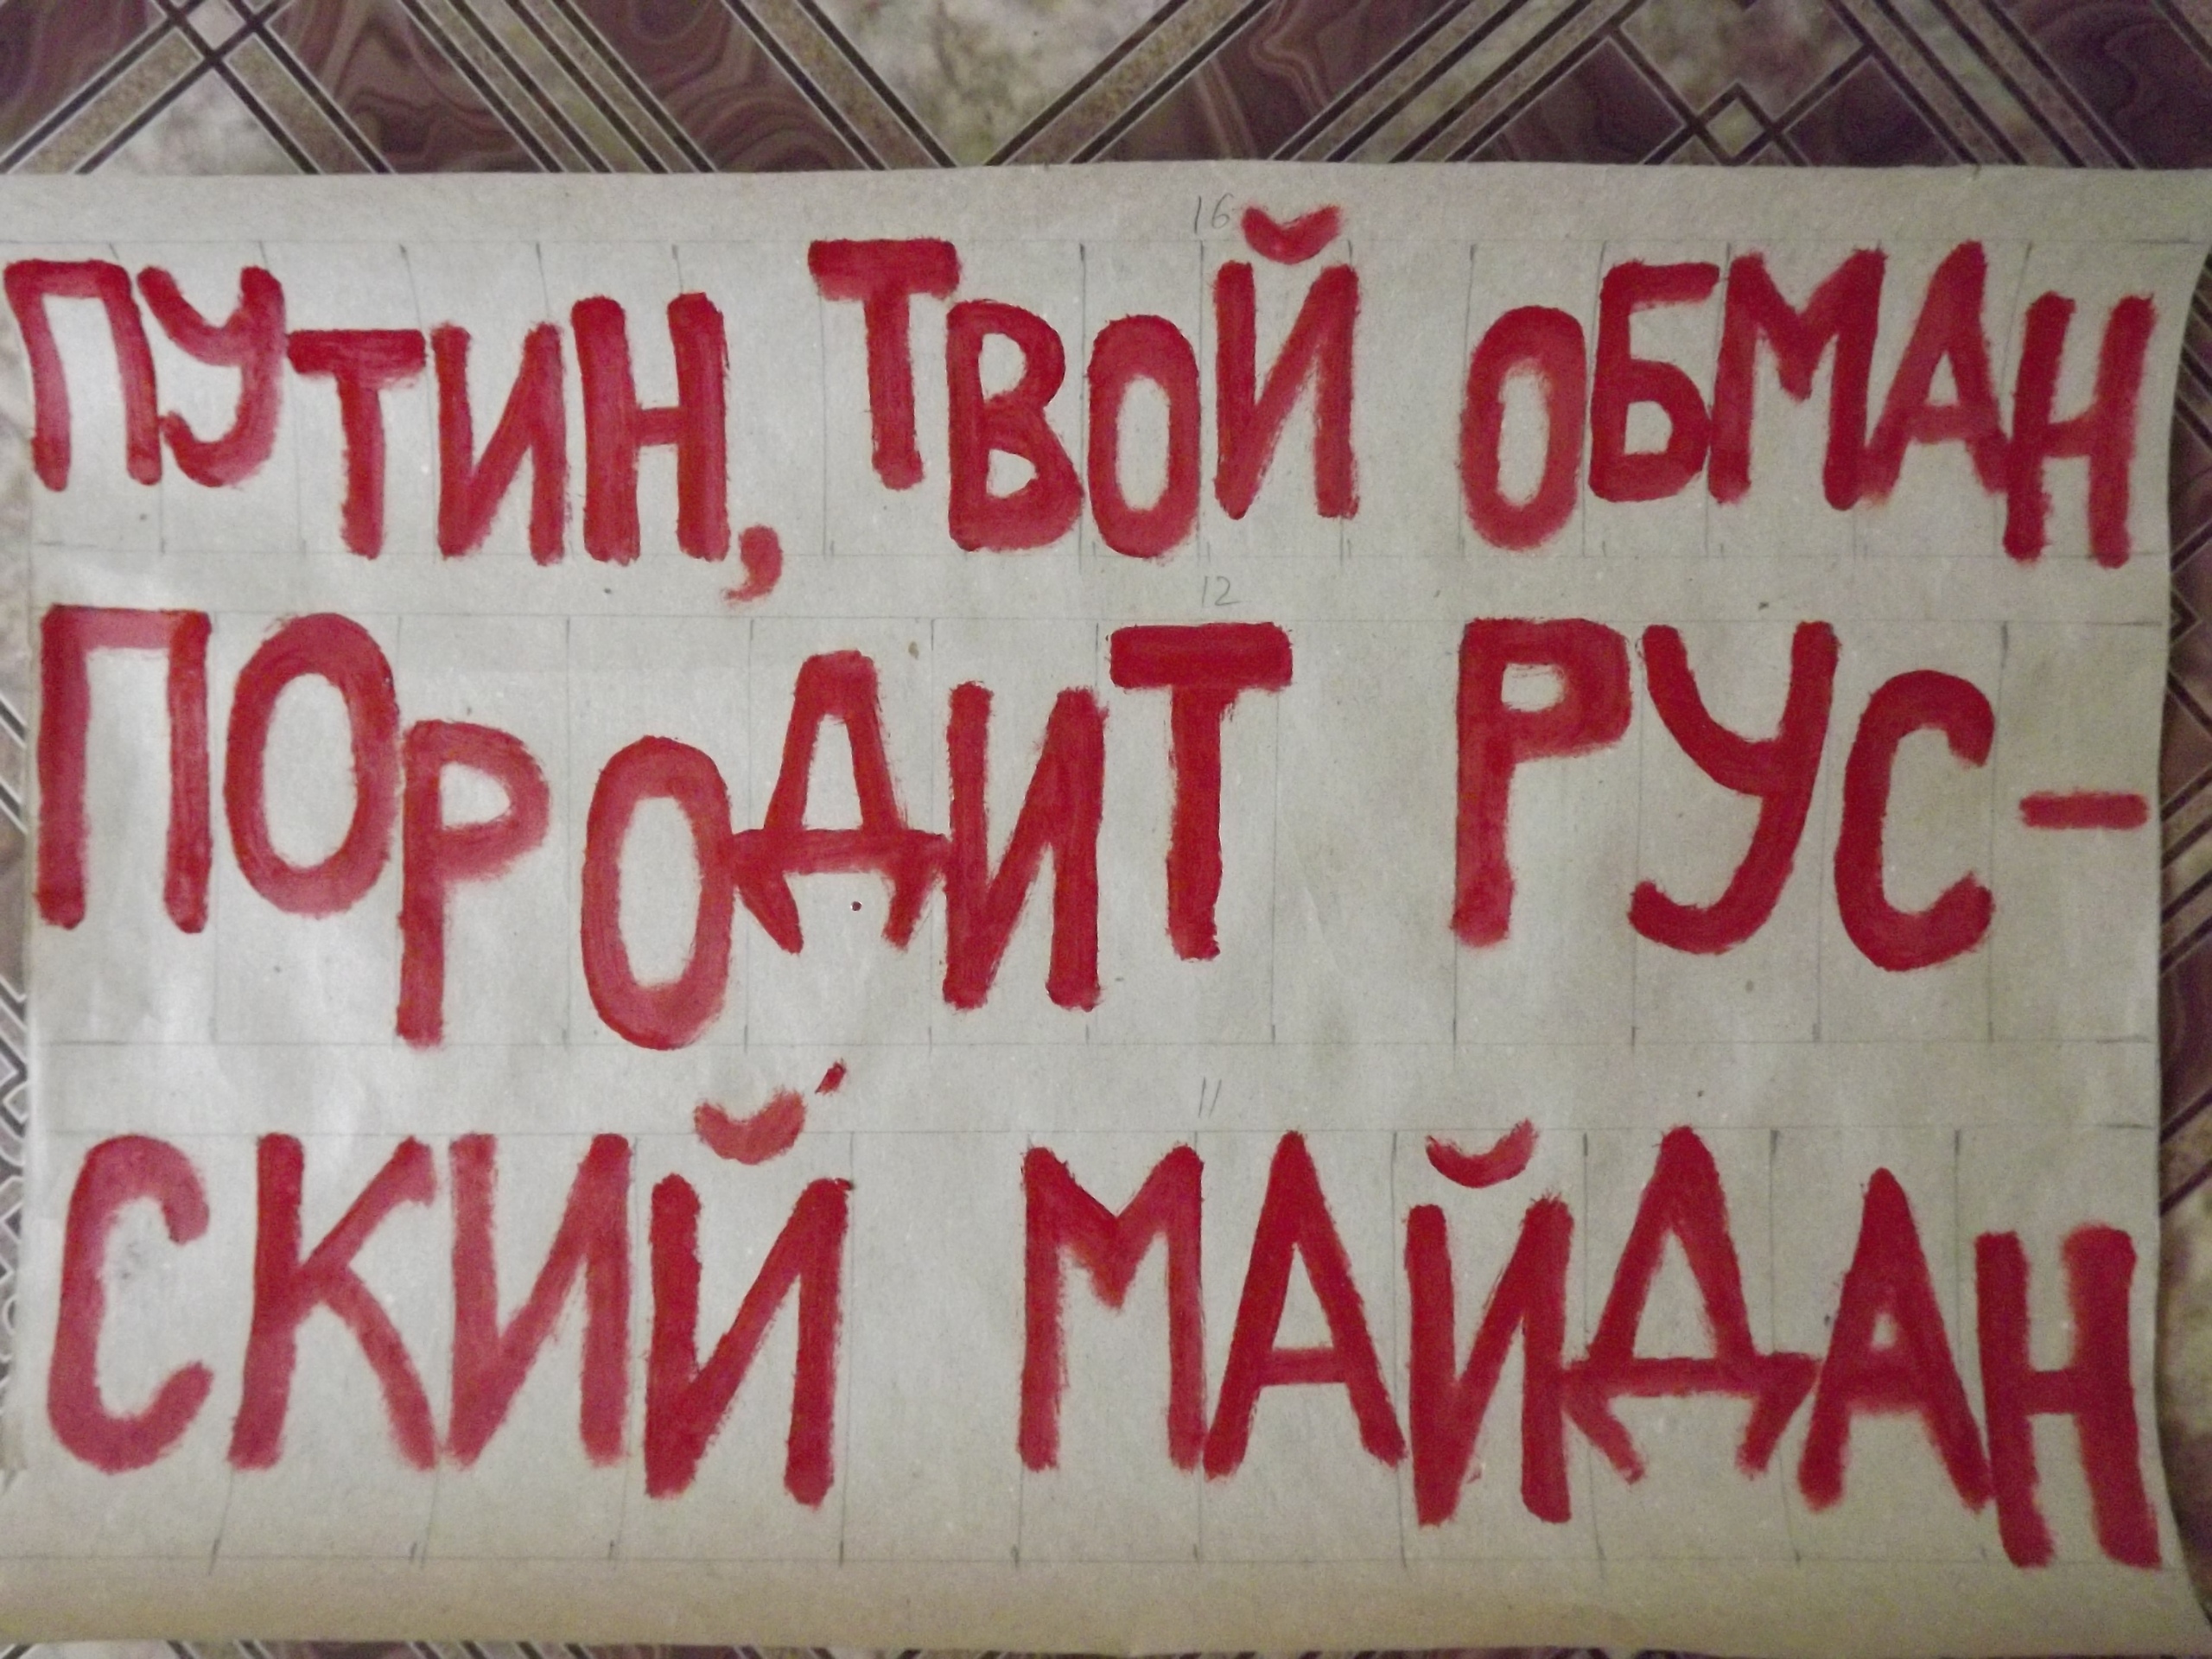 16
ПУТИН, ТВОЙ ОБМАН
12
ПОРОДИТ РУС-
11
СКИЙ МАЙДАН